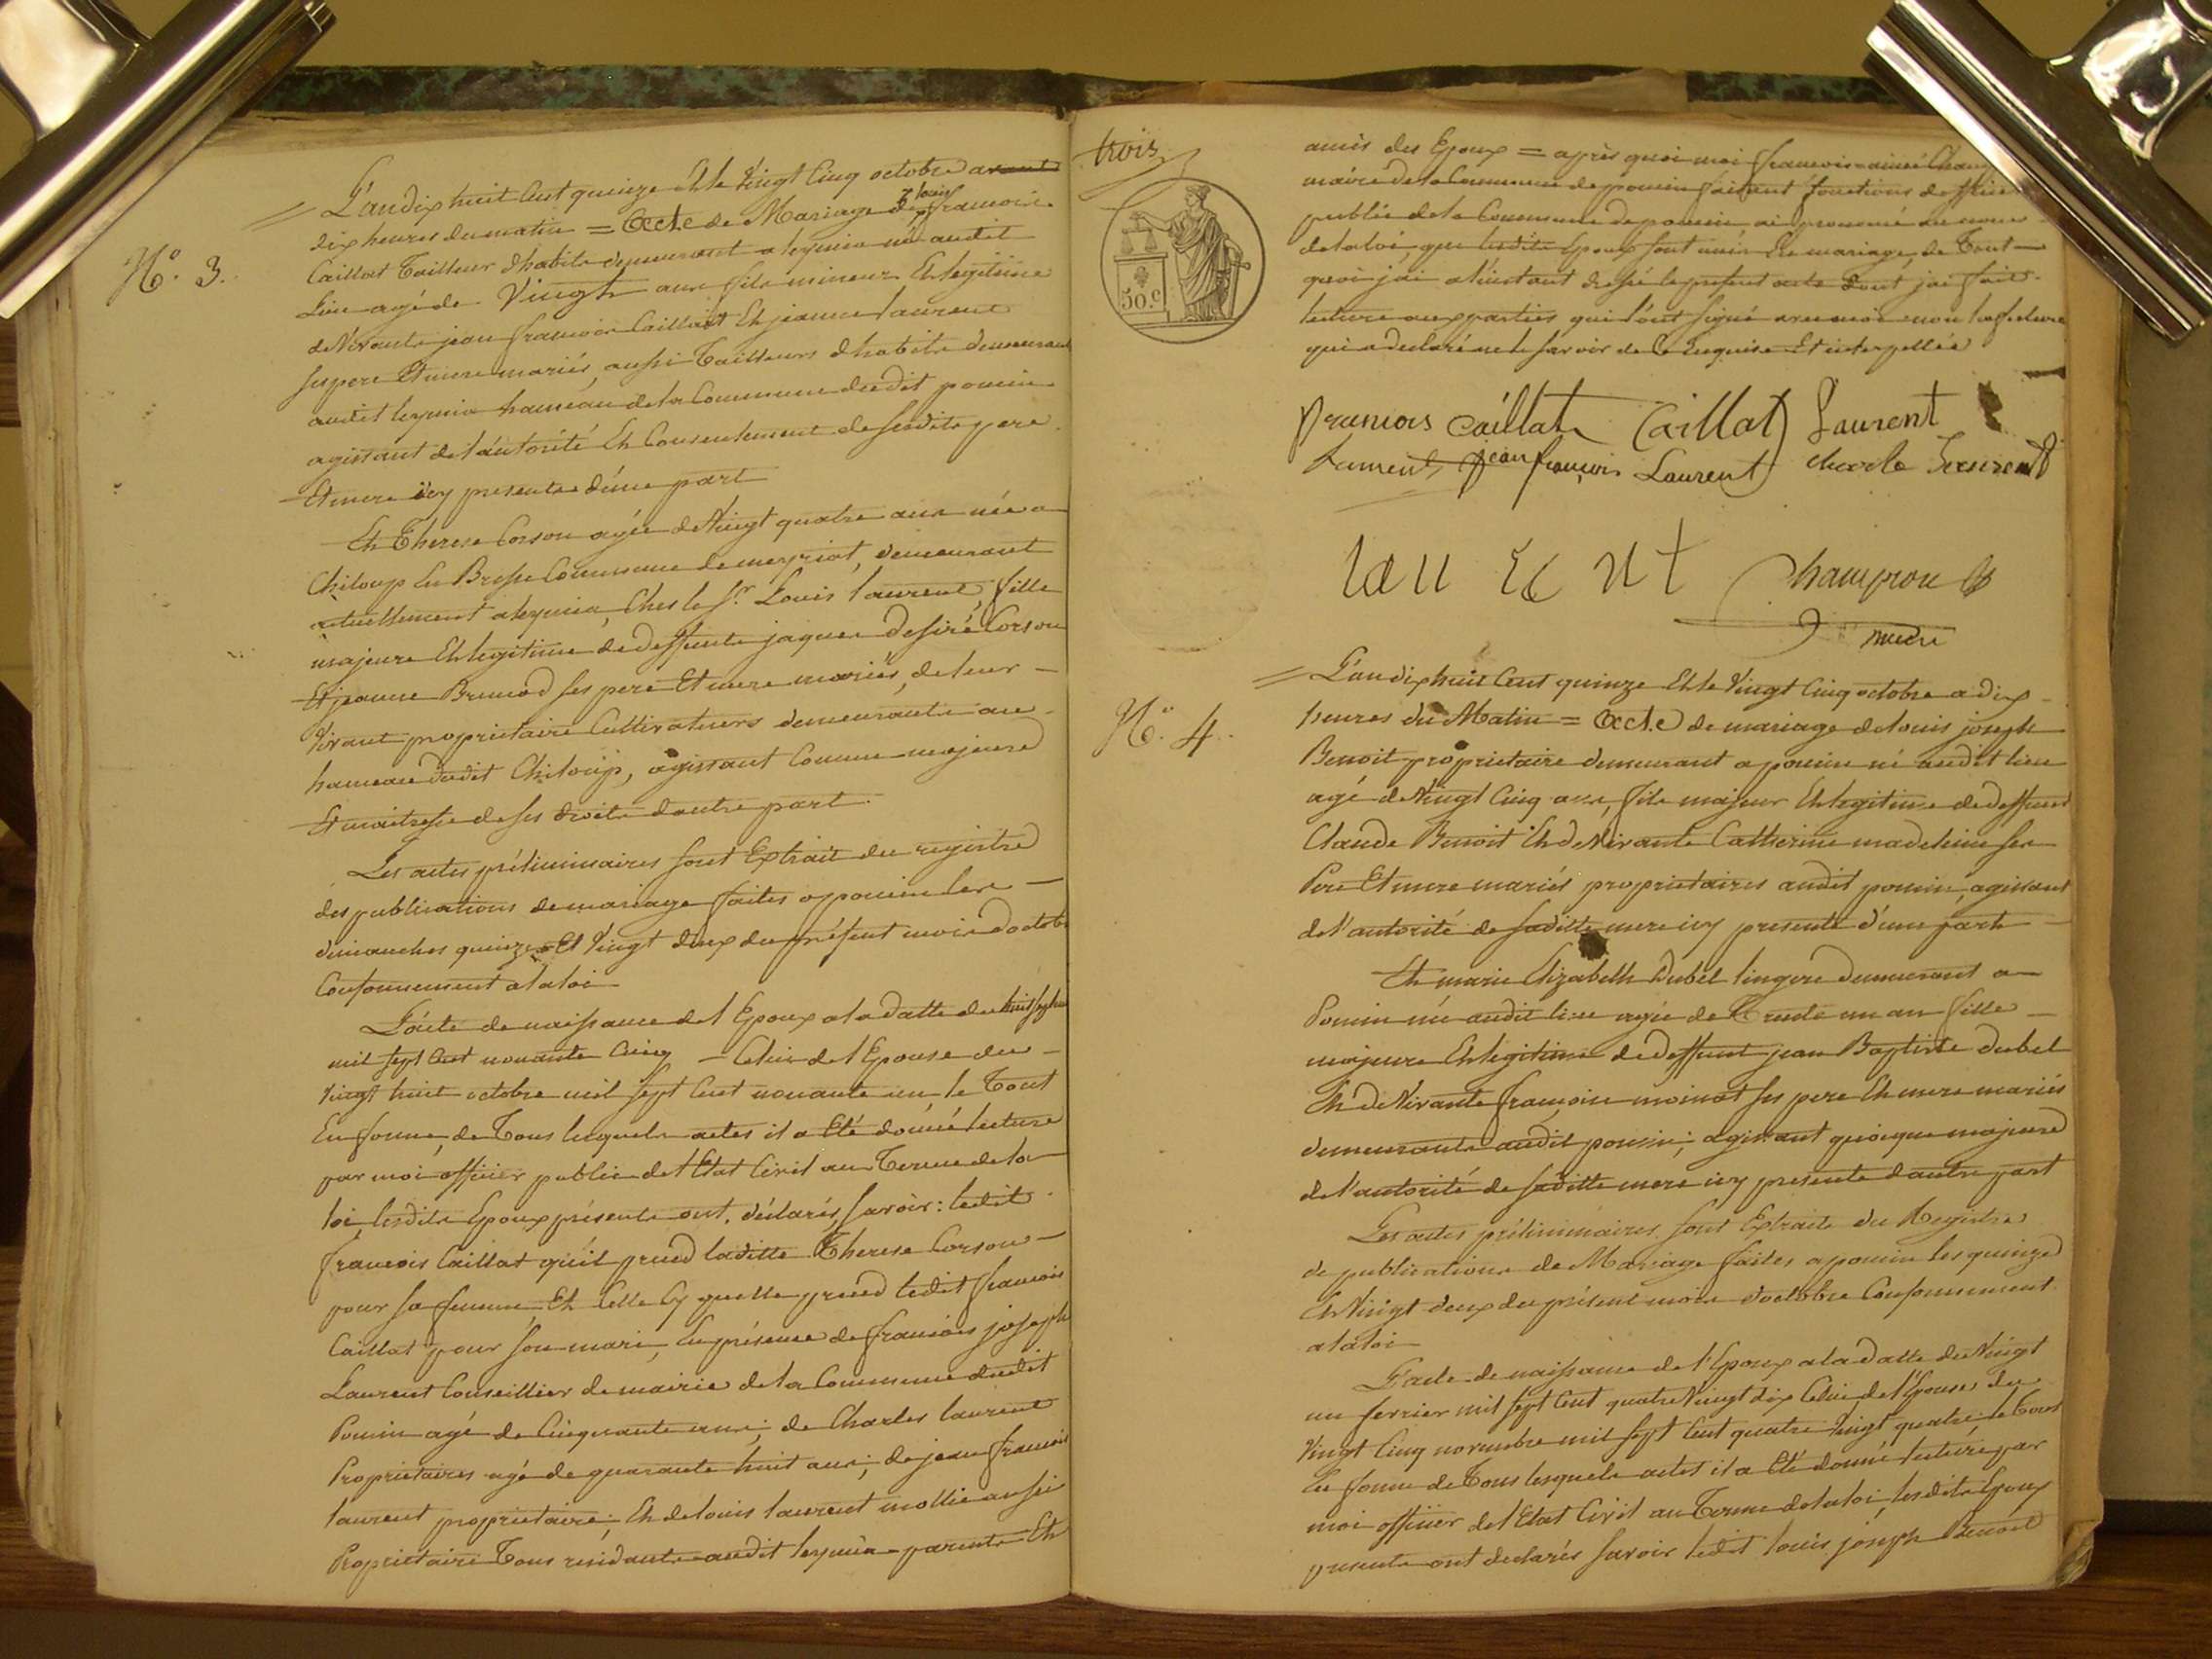 N.o 3.
L'an dix huit Cent quinze Et le Vingt Cinq octobre avant
dix heures du matin = Acte de Mariage de francois
Caillat Tailleur dhabits demeurant a leymia né audit
Lieu agé de Vingt ans fils mineur Et legitime
de Vivants jean francois Caillat Et jeanne laurent
ses pere Et mere mariés, aussi Tailleurs dhabits demeurant
audit leymia hameau de la Commune dudit poncin
agissant de l'autorité Et Consentement de sesdits pere
Et mere icy presents d'une part
Et Therese Corson agée de Vingt quatre ans née a
Chiloup En Bresse Commune de meyriat, demeurant
actuellement a leymia, Ches le Sr. Louis laurent, fille
majeure Et legitime de deffunts jaques desiré Corson
Et jeanne Brunod ses pere Et mere mariés, de leur
Vivant proprietaire Cultivateurs demeurants au
hameau dudit Chiloup, agissant Comme majeure
Et maitresse de ses droits d'autre part.
Les actes préliminaires sont Extrait du registre
des publications de mariage faites a poncin les
dimanches quinze Et Vingt deux du présent mois d'octobre
Conformement a la loi
L'acte de naissance de l'Epoux a la datte du huit
mil sept Cent nonante Cinq - Celui de l'Epouse du
Vingt huit octobre mil sept Cent nonante un, le Tout
En forme, de Tous lesquels actes il a Eté donné lecture
par moi officier public de l'Etat Civil au Terme de la
loi, lesdits Epoux présents ont déclarés, savoir: ledit
francois Caillat qu'il prend laditte Therese Corson
pour sa femme, Et Celle Cy quelle prend ledit francois
Caillat pour son mari, En présence de francois joseph
Laurent Conseillier de mairie de la Commune dudit
Poncin agé de Cinquante ans; de Charles laurent
Proprietaires agé de quarante huit ans; de jean francois
laurent proprietaire; Et de louis laurent mollie aussi
Proprietaire Tous residants audit leymia parents Et
trois
50.c
amis des Epoux = après quoi moi francois aimé
maire de la Commune de poncin faisant fonctions d'officier
public de la Commune de poncin ai prononcé au nom
de la loi, que lesdits Epoux sont unis En mariage, de Tout
quoi j'ai a l'instant dressé le present acte dont jai fait
lecture aux parties qui l'ont signé avec moi non la future
qui a declaré ne le savoir de Ce Enquise Et interpellée
francois Caillat Caillat Laurent
Laurent jean françois Laurent charle Laurent
lau re nt Champion
maire
N.o 4.
L'an dix huit Cent quinze Et le Vingt Cinq octobre a dix
heures du Matin = Acte de mariage de louis joseph
Benoit proprietaire demeurant a poncin né audit lieu
agé de Vingt Cinq ans, fils majeur Et legitime de deffunt
Claude Benoit Et de Vivante Catherine madeleine ses
Pere Et mere mariés proprietaires audit poncin, agissant
de l'autorité de saditte mere icy presente d'une part
Et marie Elizabeth Dubel lingere demeurant a
Poncin née audit lieu agée de Trente un an fille
majeure Et legitime de deffunt jean Baptiste dubel
Et de Vivante francoise moinat ses pere Et mere mariés
demeurants audit poncin; agissant quoique majeure
de l'autorité de saditte mere icy presente d'autre part
Les actes préliminaires sont Extraits du Registre
de publications de Mariage faites a poncin les quinze
Et Vingt deux du présent mois d'octobre Conformement
a la loi
L'acte de naissance de l'Epoux a la datte du Vingt
un fevrier mil sept Cent quatre Vingt dix Celui de l'Epouse du
Vingt Cinq novembre mil sept Cent quatre Vingt quatre, le Tout
En forme de Tous lesquels actes il a Eté donné lecture par
moi officier de l'Etat Civil au Terme de la loi, lesdits Epoux
presents ont declarés savoir ledit louis joseph Benoit